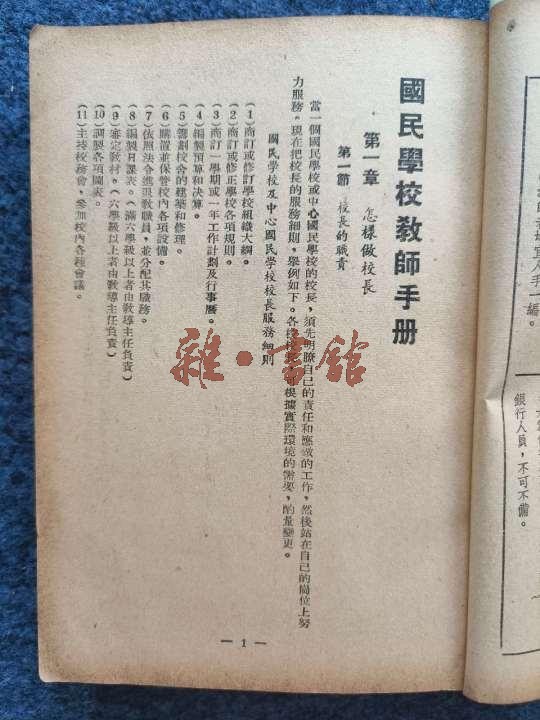 國民學校教師手册
第一章 怎樣做校長
第一節 校長的職責
當一個國民學校或中心國民學校的校長，須先明瞭自己的責任和應做的工作，然後站在自己的崗位上努
力服務。現在把校長的服務細則，舉例如下。各校校長，可根據實際環境的需要，酌量變更。
國民學校及中心國民學校校長服務細則
(1)商訂或修訂學校組織大綱。
(2)商訂或修正學校各項規則。
(3)商訂一學期或一年工作計劃及行事曆。
(4)編製預算和决算。
(5)籌劃校舍的建築和修理。
(6)購置並保管校內各項設備。
(7)依照法令進退教職員，並分配其職務。
(8)編製日課表。(滿六學級以上者由教導主任負責)
(9)審定教材。(六學級以上者由教導主任負責)
(10)調製各項圖表。
(11)主持校務會，參加校內各種會議。
— 1 —
雜·書館
人手一編。
銀行人員，不可不備。